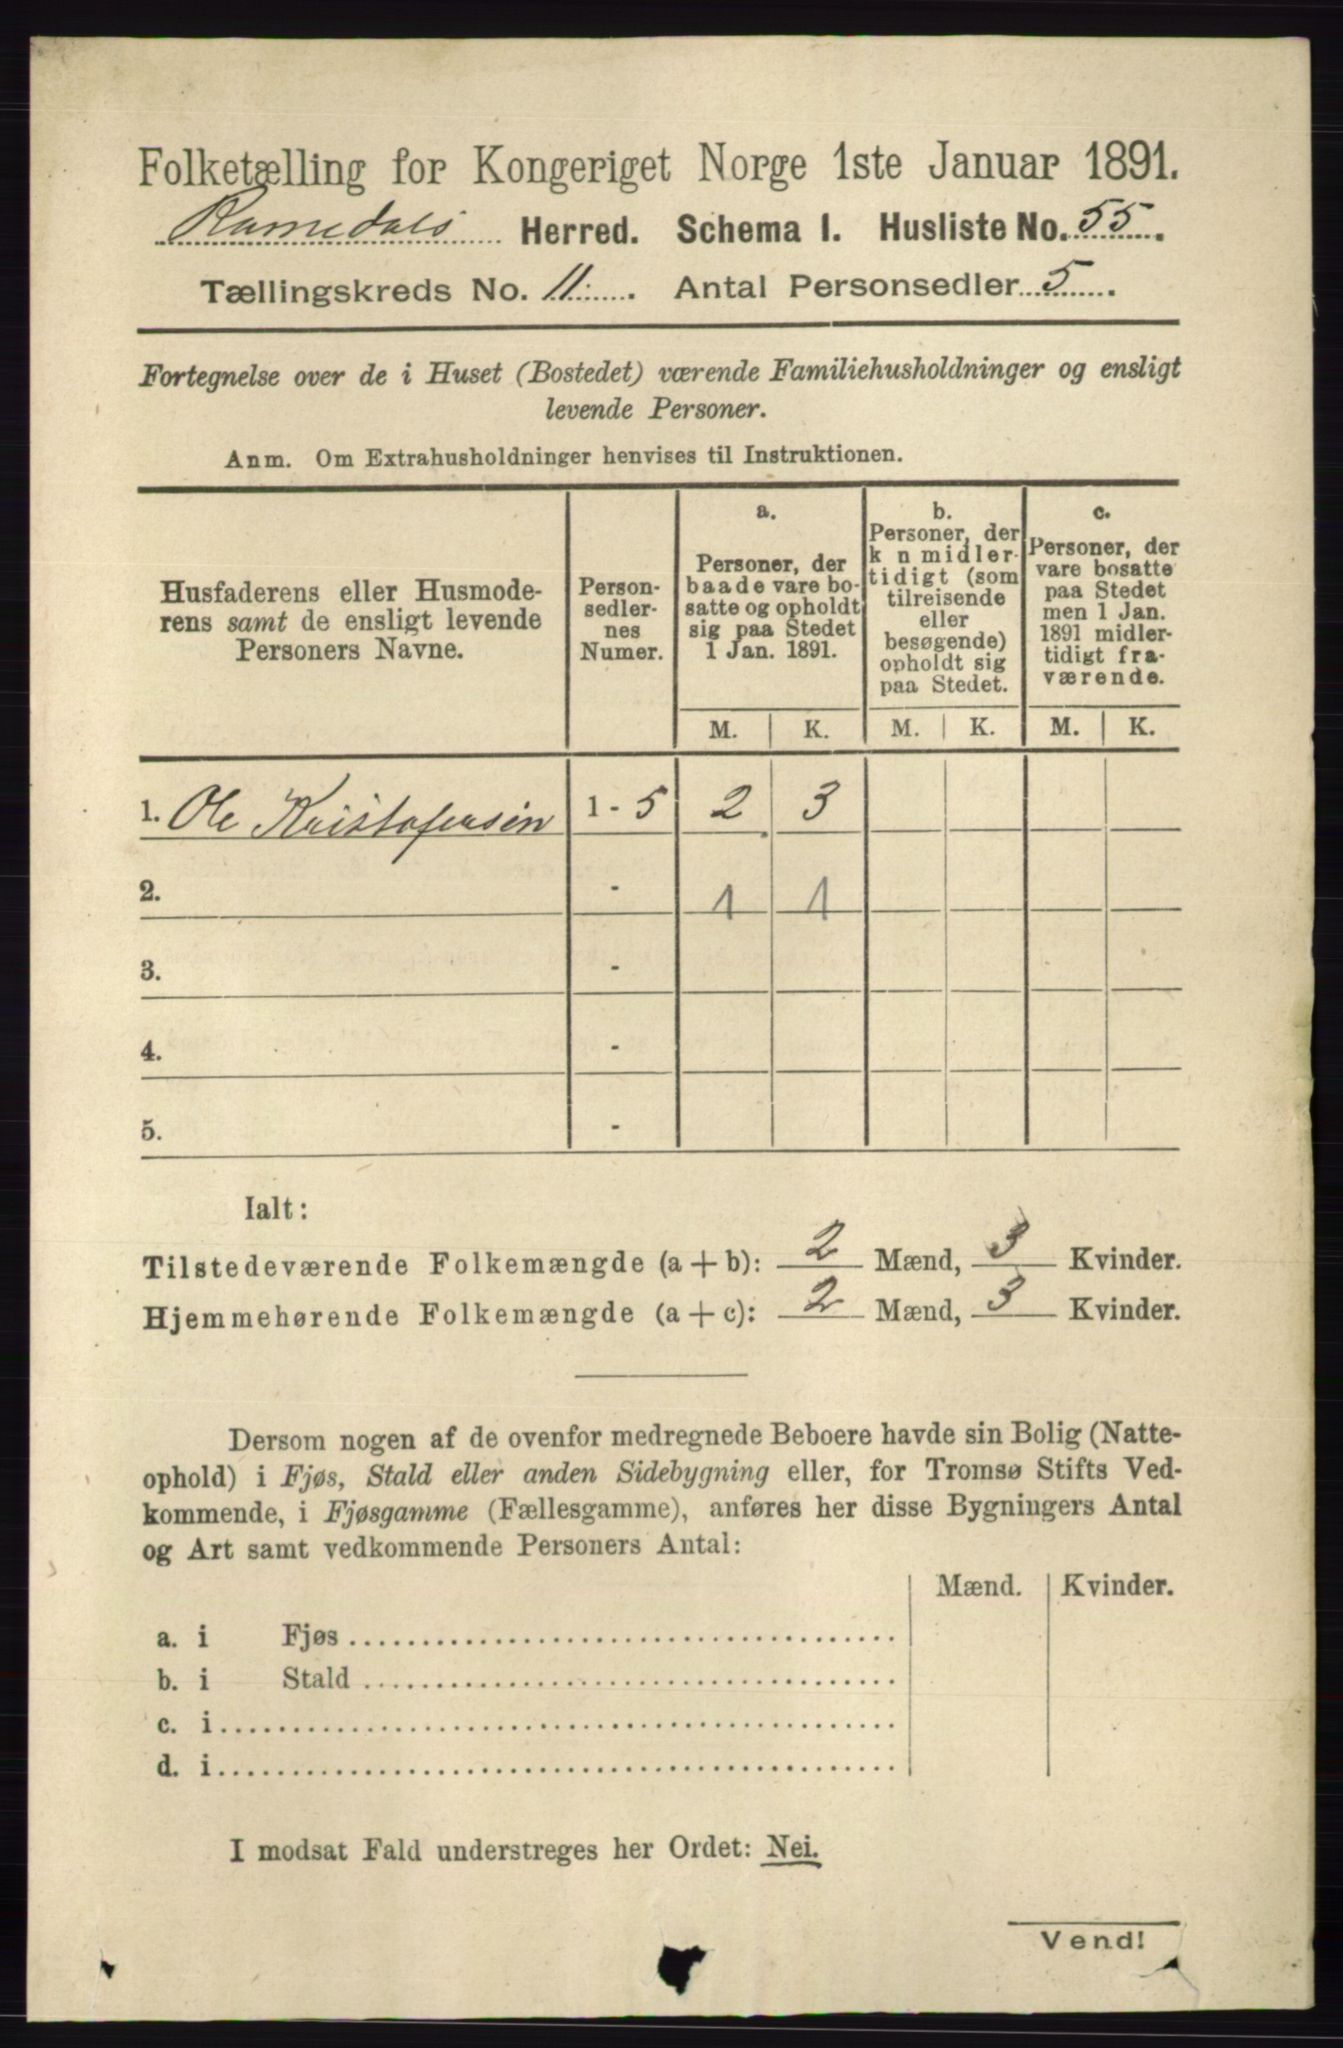 Folketælling for Kongeriget Norge 1ste Januar 1891.
Romedals Herred. Schema 1. Husliste No. 55.
Tællingskreds No. 11. Antal Personsedler 5.
Fortegnelse over de i Huset (Bostedet) værende Familiehusholdninger og ensligt
levende Personer.
Anm. Om Extrahusholdninger henvises til Instruktionen.
Husfaderens eller Husmode-
rens samt de ensligt levende
Personers Navne.
Person-
sedler-
nes
Numer.
a.
Personer, der
baade vare bo-
satte og opholdt
sig paa Stedet
1 Jan. 1891.
b.
Personer, der
k n midler-
tidigt (som
tilreisende
eller
besøgende)
opholdt sig
paa Stedet.
c.
Personer, der
vare bosatte
paa Stedet
men 1 Jan.
1891 midler-
tidigt fra-
værende.
M. K. M. K. M. K.
1. Ole Kristofersen 1 - 5 2 3
2. - 1 1
3. -
4. -
5. -
Ialt:
Tilstedeværende Folkemængde (a + b): 2 Mænd, 3 Kvinder.
Hjemmehørende Folkemængde (a + c): 2 Mænd, 3 Kvinder.
Dersom nogen af de ovenfor medregnede Beboere havde sin Bolig (Natte-
ophold) i Fjøs, Stald eller anden Sidebygning eller, for Tromsø Stifts Ved-
kommende, i Fjøsgamme (Fællesgamme), anføres her disse Bygningers Antal
og Art samt vedkommende Personers Antal:
Mænd. Kvinder.
a. i Fjøs
b. i Stald
c. i
d. i
I modsat Fald understreges her Ordet: Nei.
Vend!